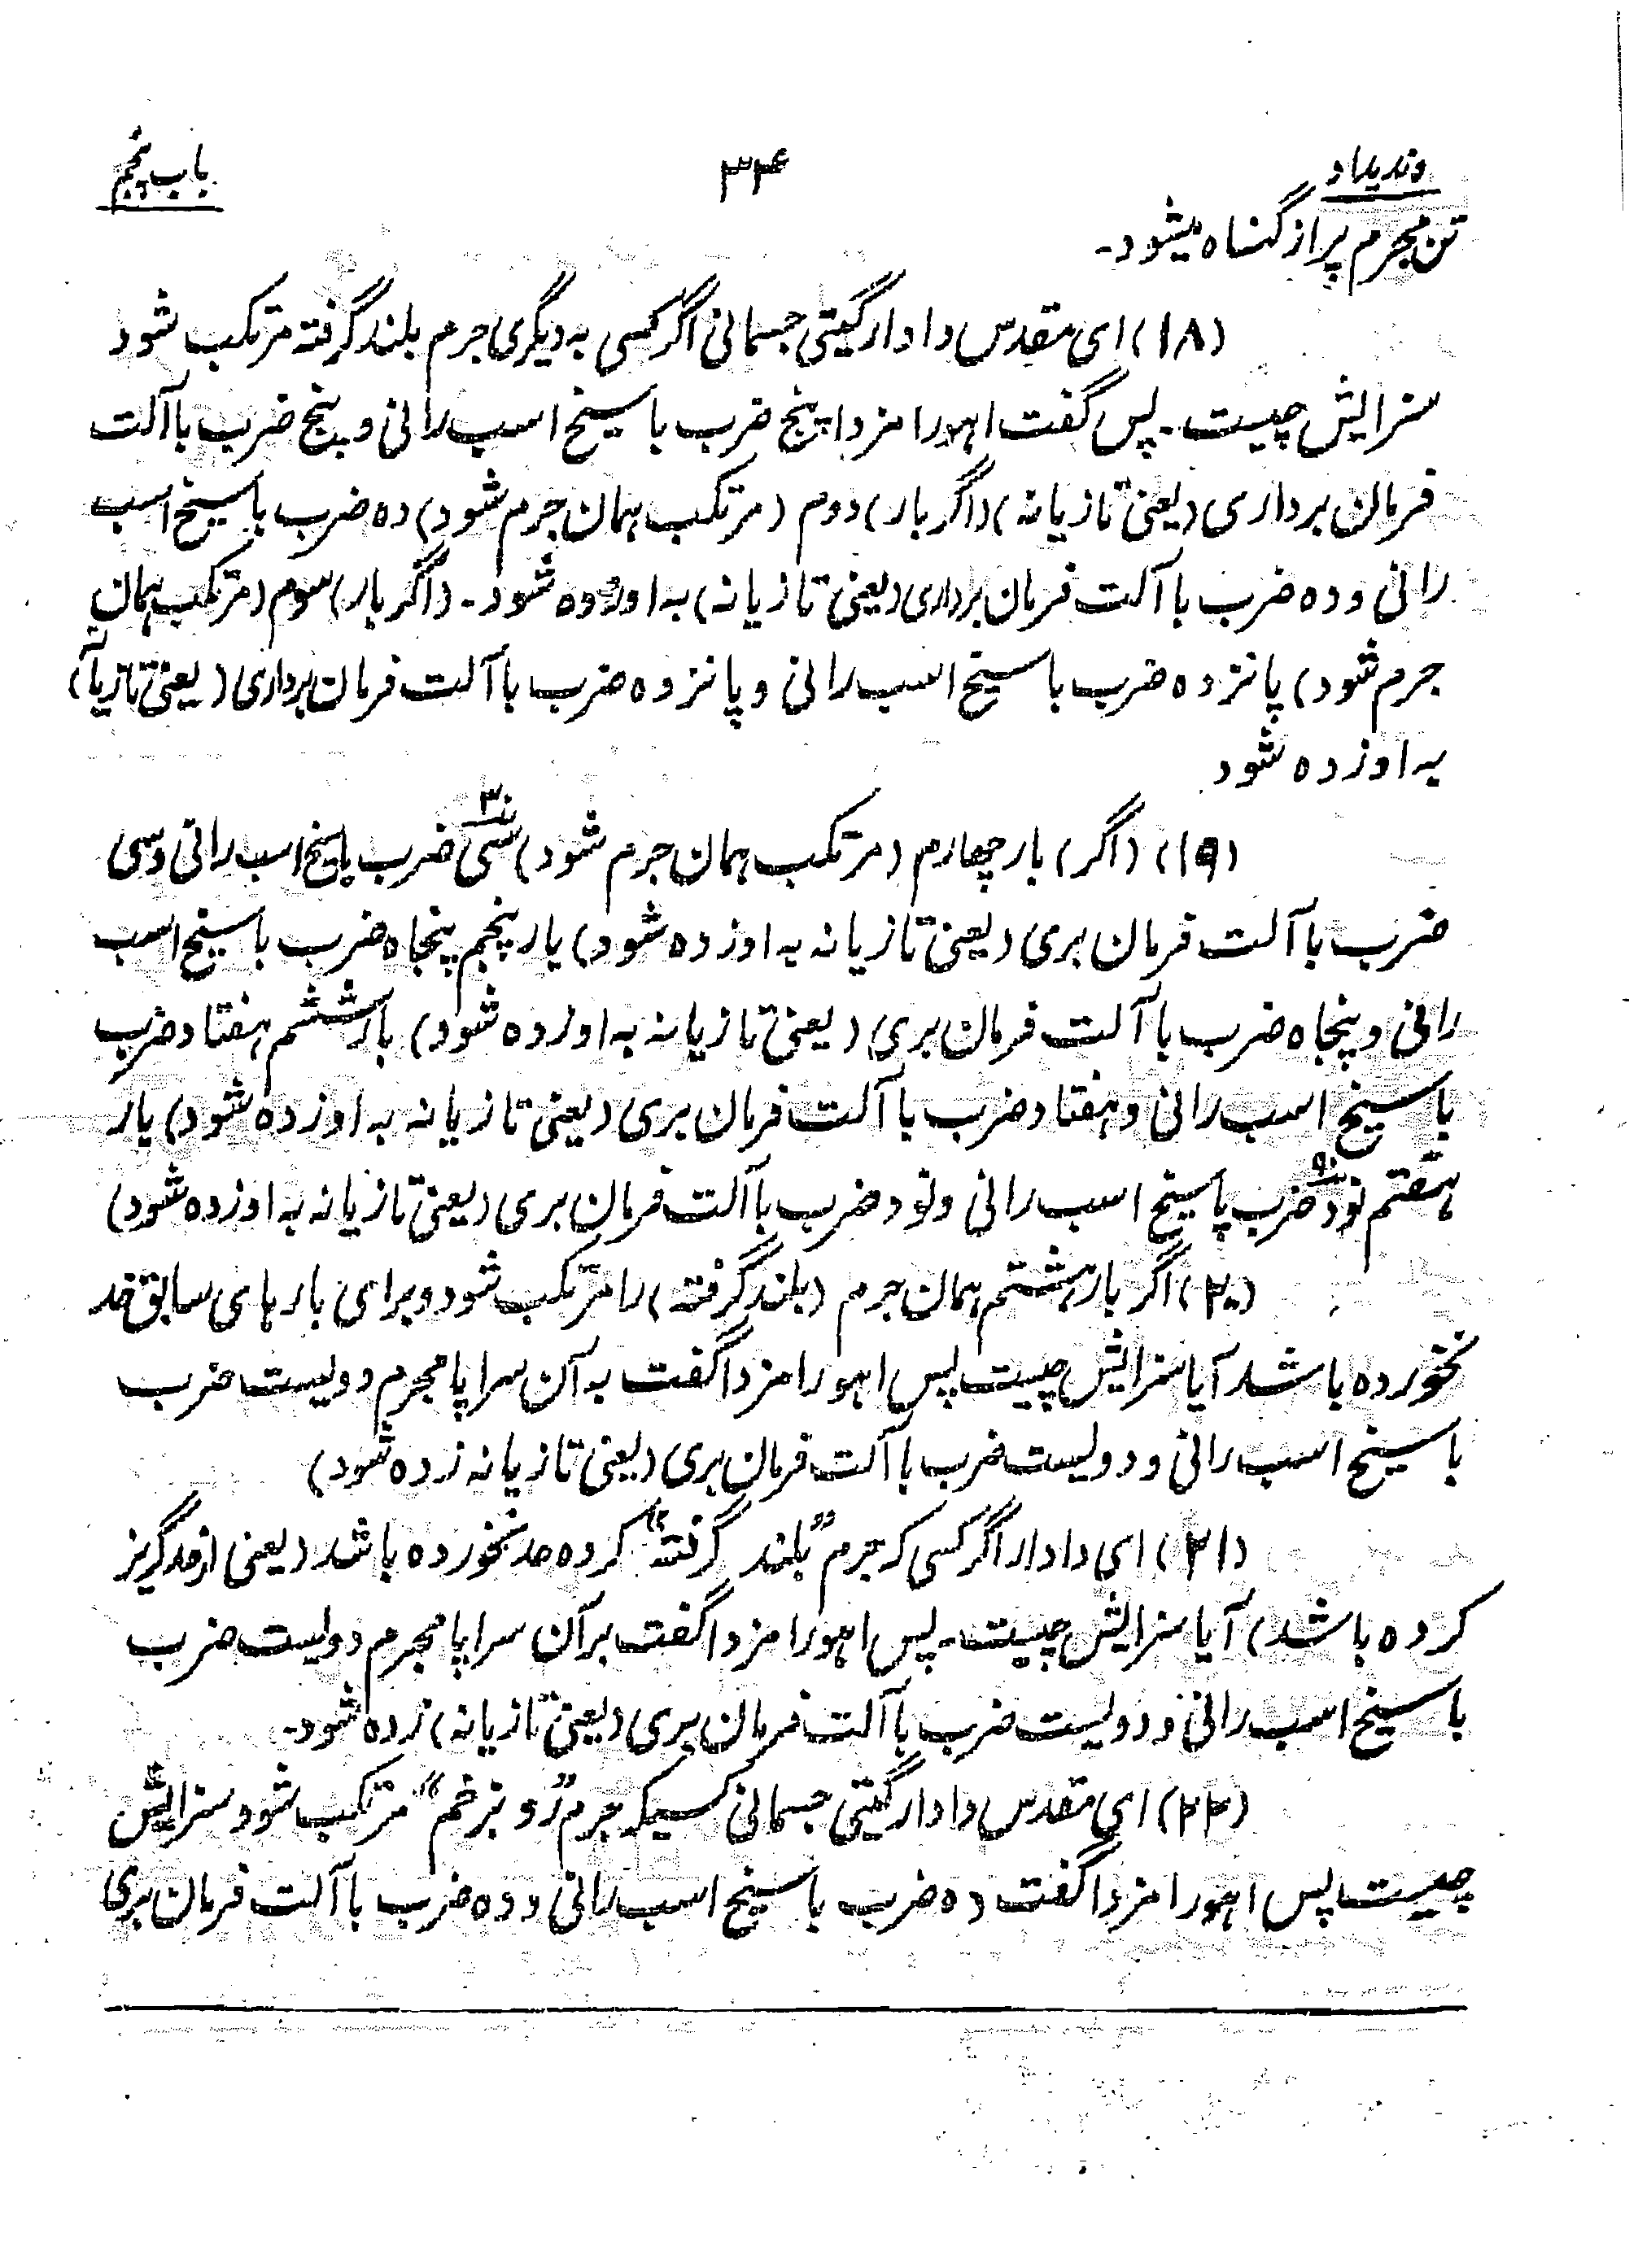 وندیداد ۳۴ باب پنجم
تن مجرم پر از گناه میشود-
(۱۸) ای مقدس دادار گیتی جسمانی اگر کسی به دیگری جرم بلند گرفته مرتکب شود
سزایش چیست- پس گفت اهورا مزدا پنج ضرب با سیخ اسب رانی و پنج ضرب با آلت
فرمان برداری (یعنی تازیانه) (اگر بار) دوم (مرتکب همان جرم شود) ده ضرب با سیخ اسب
رانی و ده ضرب با آلت فرمان برداری (یعنی تازیانه) به او زده شود- (اگر بار) سوم (مرتکب همان
جرم شود) پانزده ضرب با سیخ اسب رانی و پانزده ضرب با آلت فرمان برداری (یعنی تازیانه)
به او زده شود
(۱۹) (اگر) بار چهارم (مرتکب همان جرم شود) سی ۳۰ ضرب با سیخ اسب رانی و سی
ضرب با آلت فرمان بری (یعنی تازیانه به او زده شود) بار پنجم پنجاه ضرب با سیخ اسب
رانی و پنجاه ضرب با آلت فرمان بری (یعنی تازیانه به او زده شود) بار ششم هفتاد ضرب
با سیخ اسب رانی و هفتاد ضرب با آلت فرمان بری (یعنی تازیانه به او زده شود) بار
هفتم نود ۹۰ ضرب با سیخ اسب رانی و نود ضرب با آلت فرمان بری (یعنی تازیانه به او زده شود)
(۲۰) اگر بار هشتم همان جرم (بلند گرفته) را مرتکب شود و برای بارهای سابق حد
نخورده باشد آیا سزایش چیست پس اهورا مزدا گفت به آن سراپا مجرم دویست ضرب
با سیخ اسب رانی و دویست ضرب با آلت فرمان بری (یعنی تازیانه زده شود)
(۲۱) ای دادار اگر کسی که جرم "بلند گرفته" کرده حد نخورده باشد (یعنی از حد گریز
کرده باشد) آیا سزایش چیست- پس اهورا مزدا گفت بر آن سراپا مجرم دویست ضرب
با سیخ اسب رانی و دویست ضرب با آلت فرمان بری (یعنی تازیانه) زده شود-
(۲۲) ای مقدس دادار گیتی جسمانی کسیکه جرم "رو بزخم" مرتکب شود سزایش
چیست پس اهورا مزدا گفت ده ضرب با سیخ اسب رانی و ده ضرب با آلت فرمان بری